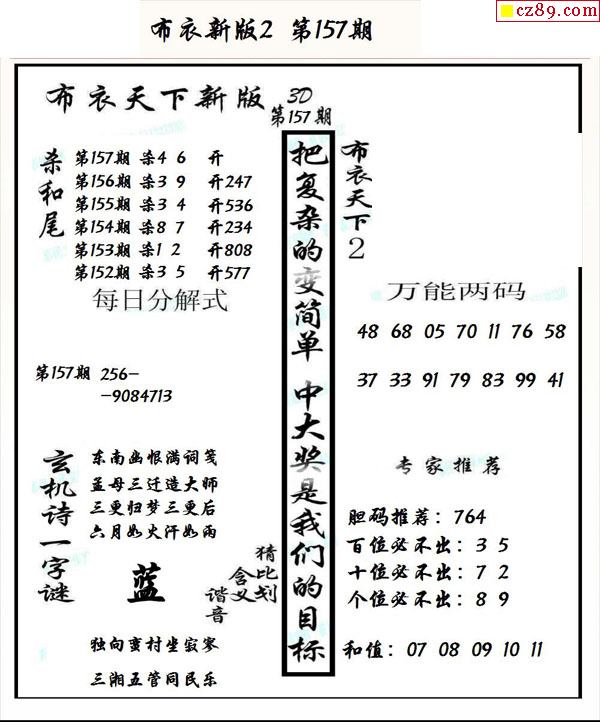 cz89.com
布衣新版2 第157期
布衣天下新版 3D
第157期
杀和尾
第157期 杀4 6 开
第156期 杀3 9 开247
第155期 杀3 4 开536
第154期 杀8 7 开234
第153期 杀1 2 开808
第152期 杀3 5 开577
每日分解式
第157期 256-
-9084713
玄机诗一字谜
东南幽恨满词笺
孟母三迁造大师
三更归梦三更后
六月如火汗如雨
蓝
猜比划
含义
谐音
独向蛮村坐寂寥
三湘五管同民乐
把复杂的变简单 中大奖是我们的目标
布衣天下2
万能两码
48 68 05 70 11 76 58
37 33 91 79 83 99 41
专家推荐
胆码推荐：764
百位必不出：3 5
十位必不出：7 2
个位必不出：8 9
和值：07 08 09 10 11